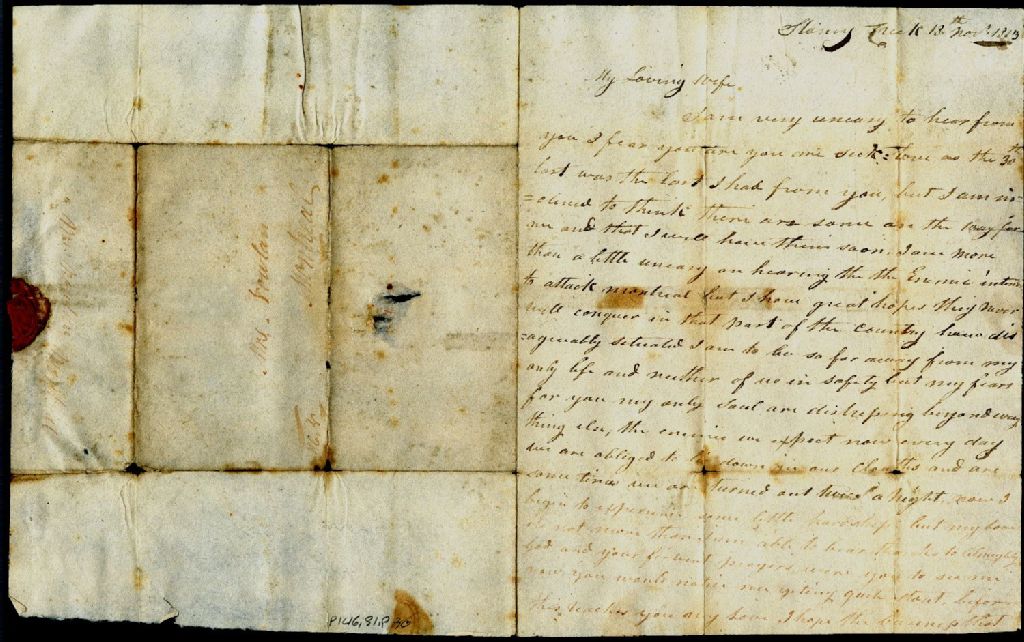 Stoney Creek 13th Novr. 1813
My Loving Wife
I am very uneasy to hear from
you I fear you are you are sick = love as the 30th
last was the last I had from you, but I am in-
=clined to think there are some on the way for
me and that I will have them soon I am more
than a little uneasy on hearing the the Enimie intend
to attack montreal but I have great hopes they never
will conquer in that part of the Country how dis
=agreably situated I am to be so far away from my
only life and neither of us in safety but my fears
for you my only Soul are distressing beyond every
thing else, the enimie we expect now every day
we are obliged to lie down in our Cloaths and are
some times we are turned out twice a night, now I
begin to experience some little hardships but my love
is not more than I am able to bear thanks to Almighty
God and your fervent prayers were you to see me
now you would notice me geting quite stout, before
this reaches you my Love I hope the business that
Mrs.
Montreal
P146,81.P